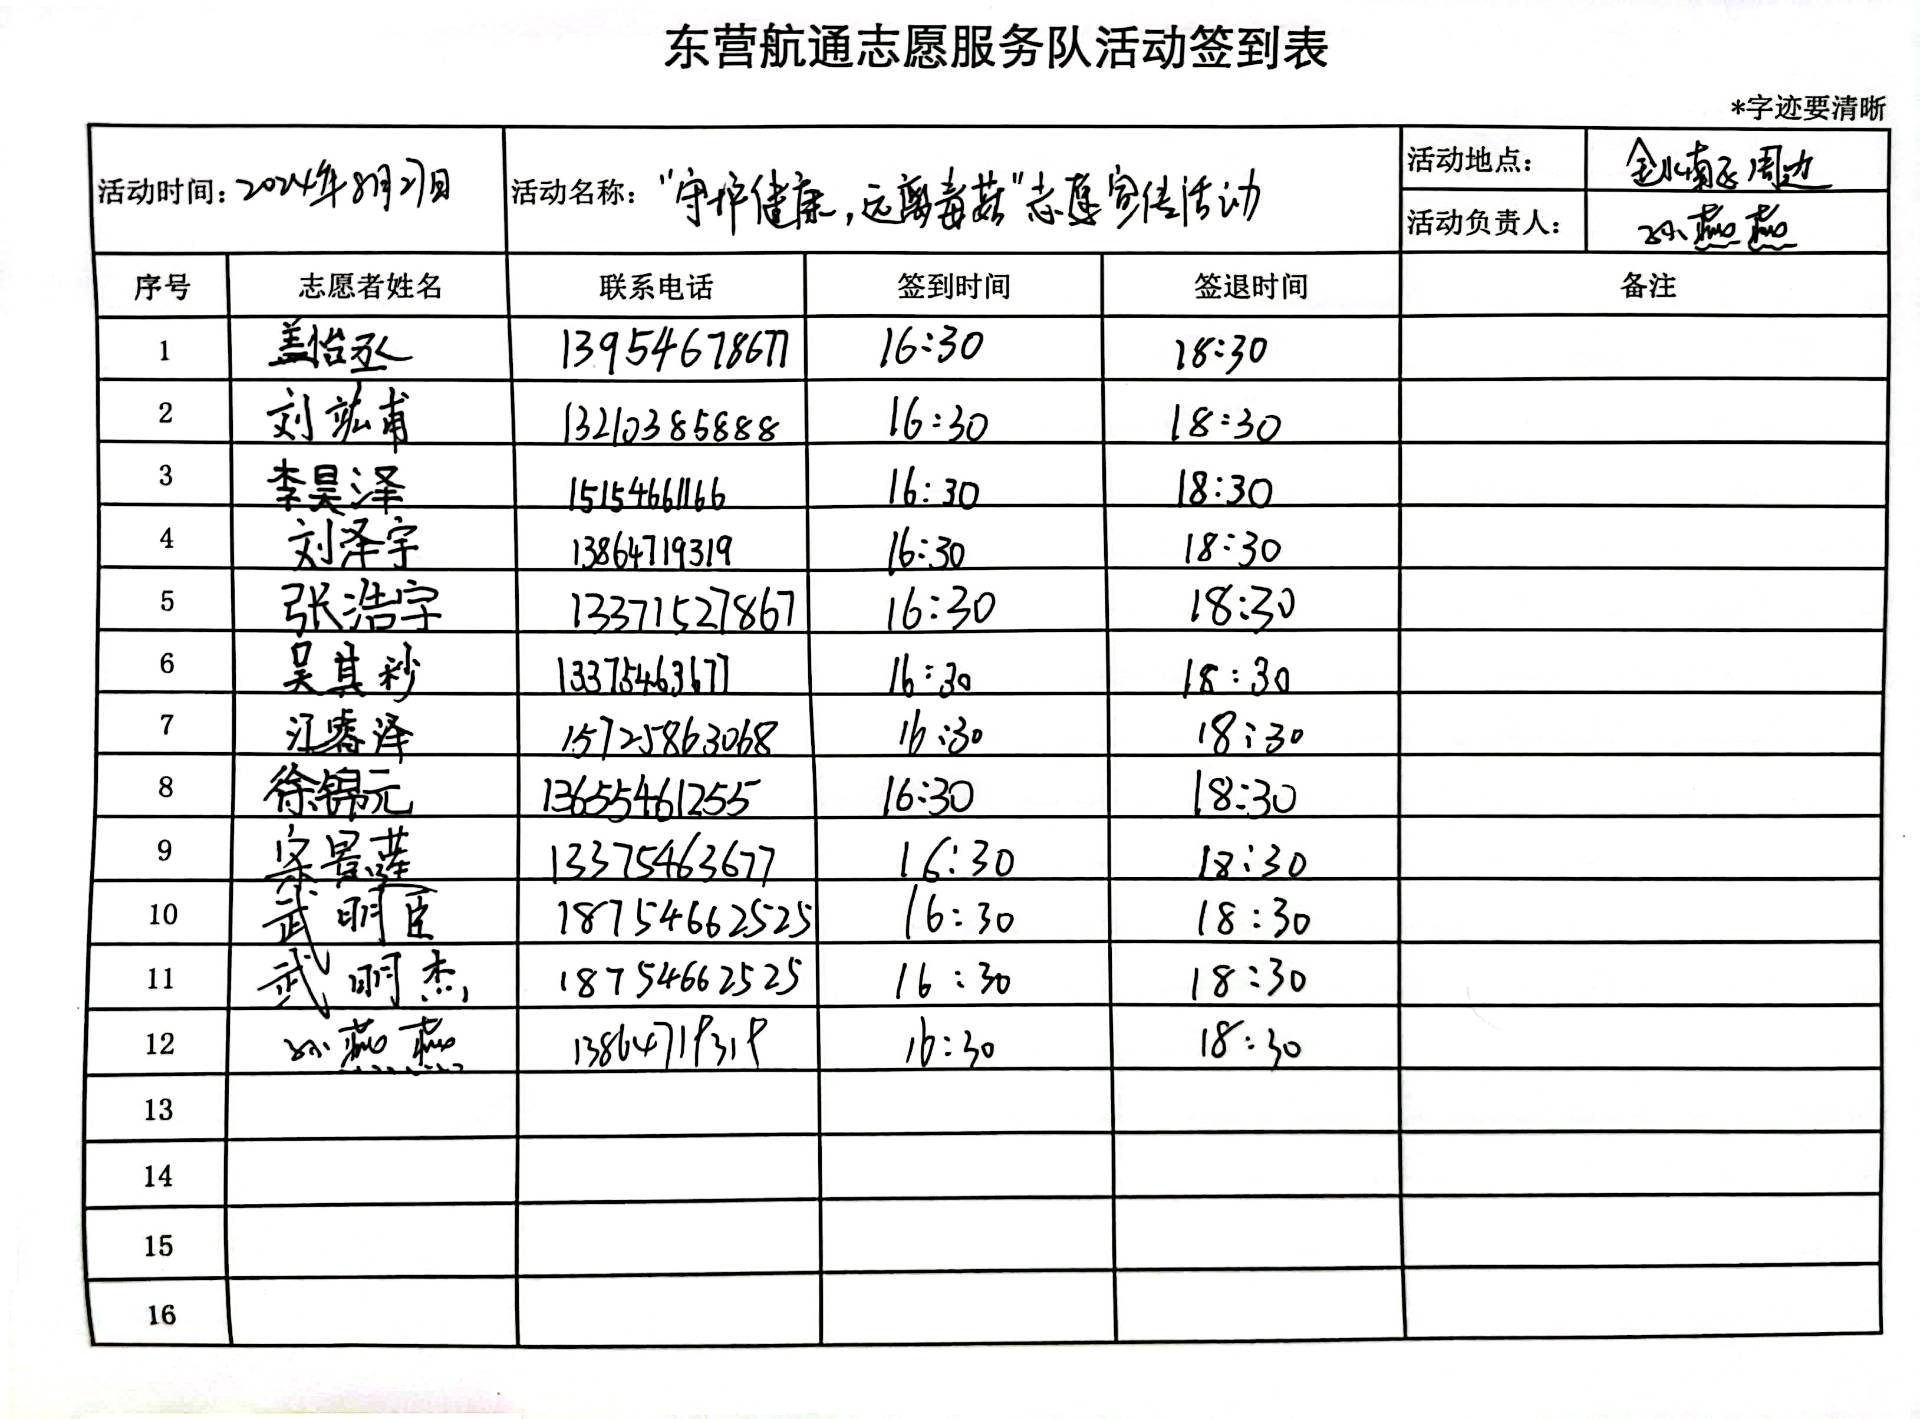 东营航通志愿服务队活动签到表
*字迹要清晰
活动时间：2024年8月27日 活动名称：“守护健康，远离毒菇”志愿宣传活动 活动地点： 周边
活动负责人： 孙燕燕
序号 志愿者姓名 联系电话 签到时间 签退时间 备注
1 盖怡丞 13954678677 16:30 18:30
2 刘竑甫 13210385888 16:30 18:30
3 李昊泽 15154661166 16:30 18:30
4 刘泽宇 13864719319 16:30 18:30
5 张浩宇 13371527867 16:30 18:30
6 吴其秒 13375463677 16:30 18:30
7 江睿泽 15725863068 16:30 18:30
8 徐锦元 13655461255 16:30 18:30
9 13375463677 16:30 18:30
10 武明臣 18754662525 16:30 18:30
11 武明杰 18754662525 16:30 18:30
12 孙燕燕 13864719319 16:30 18:30
13
14
15
16